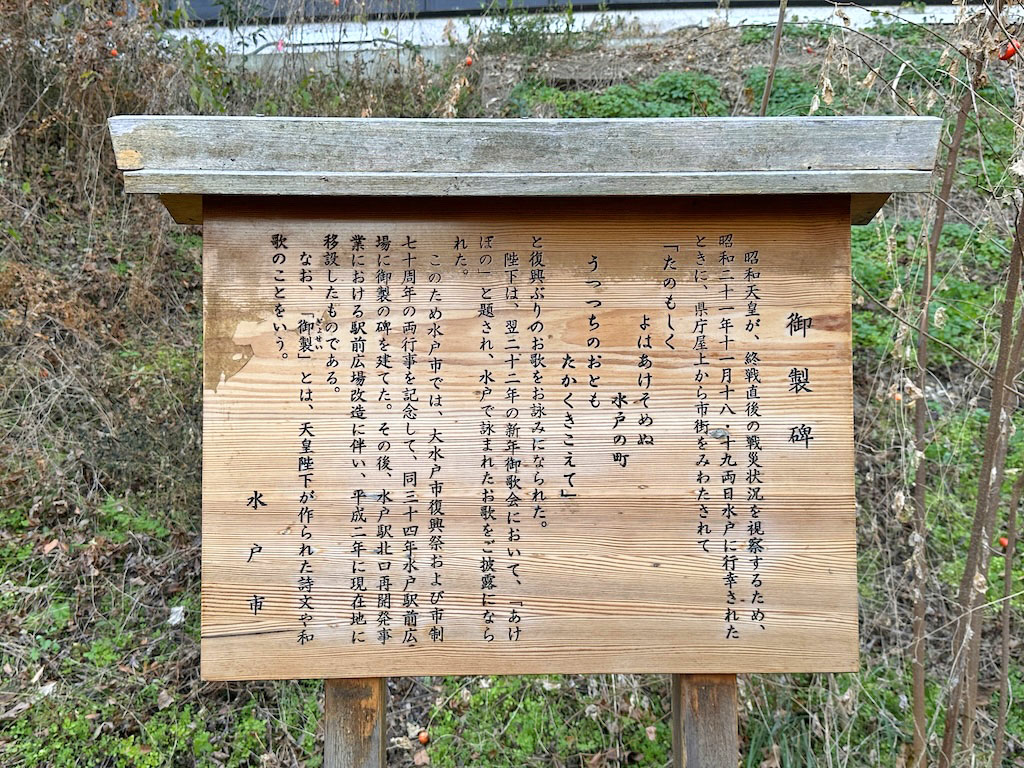 御製碑
昭和天皇が、終戦直後の戦災状況を視察するため、
昭和二十一年十一月十八・十九両日水戸に行幸された
ときに、県庁屋上から市街をみわたされて
「たのもしく
よはあけそめぬ
水戸の町
うつつちのおとも
たかくきこえて」
と復興ぶりのお歌をお詠みになられた。
陛下は、翌二十二年の新年御歌会において、「あけ
ぼの」と題され、水戸で詠まれたお歌をご披露になら
れた。
このため水戸市では、大水戸市復興祭および市制
七十周年の両行事を記念して、同三十四年水戸駅前広
場に御製の碑を建てた。その後、水戸駅北口再開発事
業における駅前広場改造に伴い、平成二年に現在地に
移設したものである。
なお、「御製」とは、天皇陛下が作られた詩文や和
ぎょせい
歌のことをいう。
水戸市